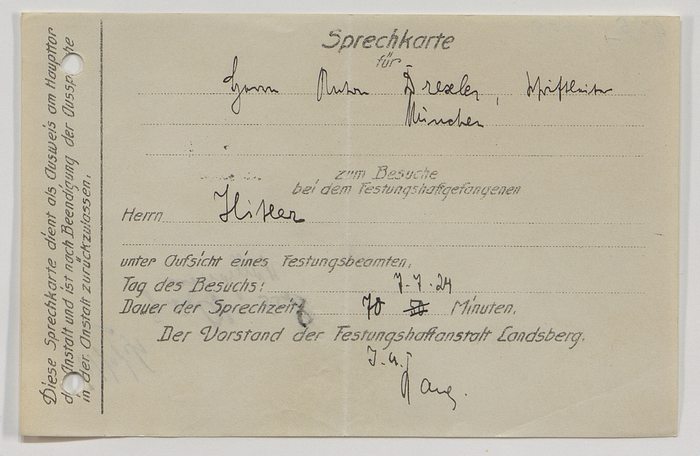 Sprechkarte
für
Herrn Anton Drexler, Schriftleiter
München
zum Besuche
bei dem Festungshaftgefangenen
Herrn Hitler
unter Aufsicht eines Festungsbeamten.
Tag des Besuchs: 7.7.24
Dauer der Sprechzeit: 70 Minuten.
Der Vorstand der Festungshaftanstalt Landsberg.
I.A.
Diese Sprechkarte dient als Ausweis am Haupttor
der Anstalt und ist nach Beendigung der Aussprache
in der Anstalt zurückzulassen.